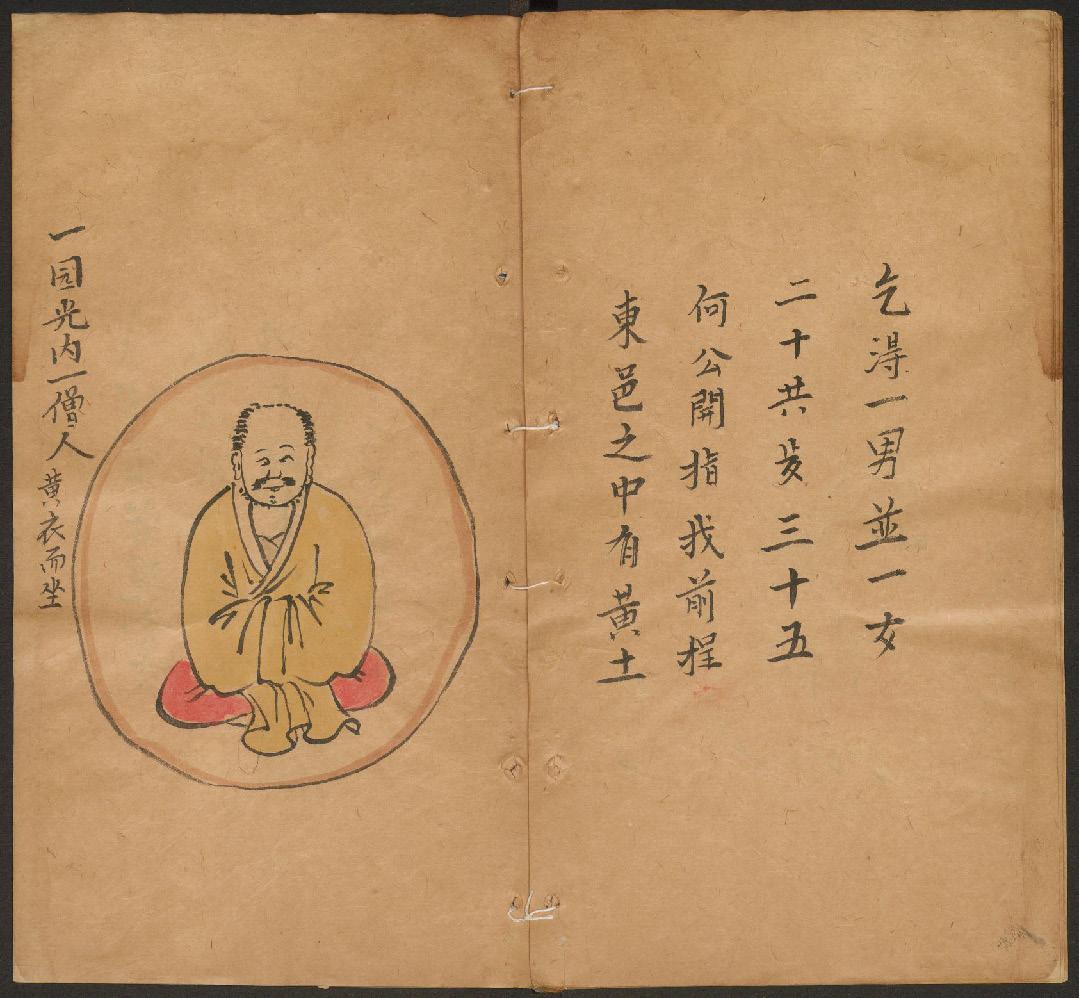 乞淂一男並一女
二十共岁三十五
何公開指我前程
東邑之中有黃土
一园光内一僧人
黄衣而坐